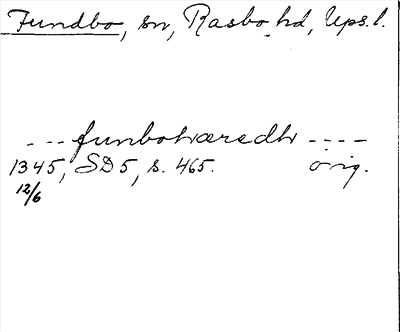 Fundbo, sn, Rasbo hd, Ups. l.
---funbohæredh----
1345, SD 5, s. 465. orig.
12/6